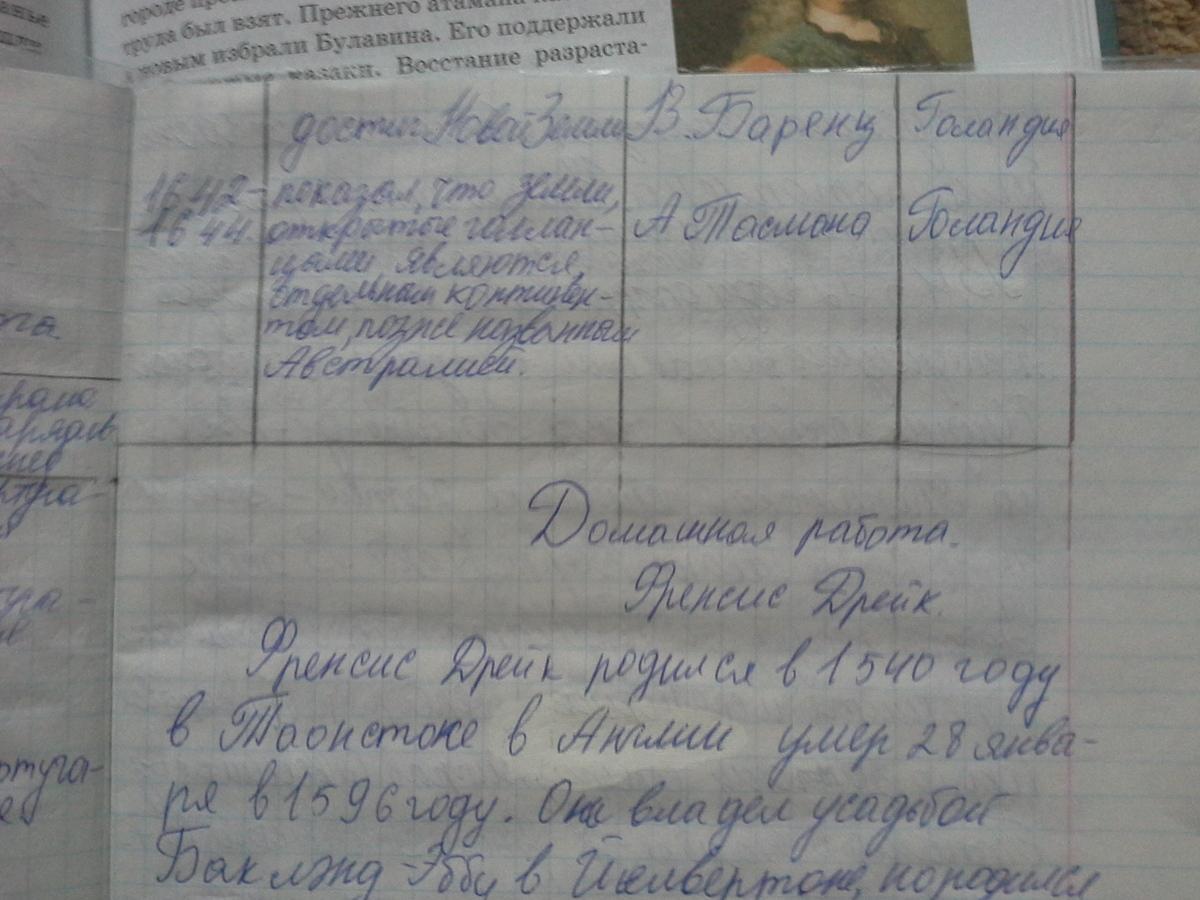 городе
труда был взят. Прежнего атамана
новым избрали Булавина. Его поддержали
казаки. Восстание разраста-
достиг Новой Земли В. Баренц Голандия
1642-1644. показал, что земли, открытые голлан-
дцами, являются,
отдельным континен-
том, позже названным
Австралией.
А Тасмана Голандия
Домашная работа.
Френсис Дрейк.
Френсис Дрейк родился в 1540 году
в Таонстоке в Англии умер 28 янва-
ря в 1596 году. Он владел усадьбой
Баклэнд-Эбби в Йелвертоне, но родился